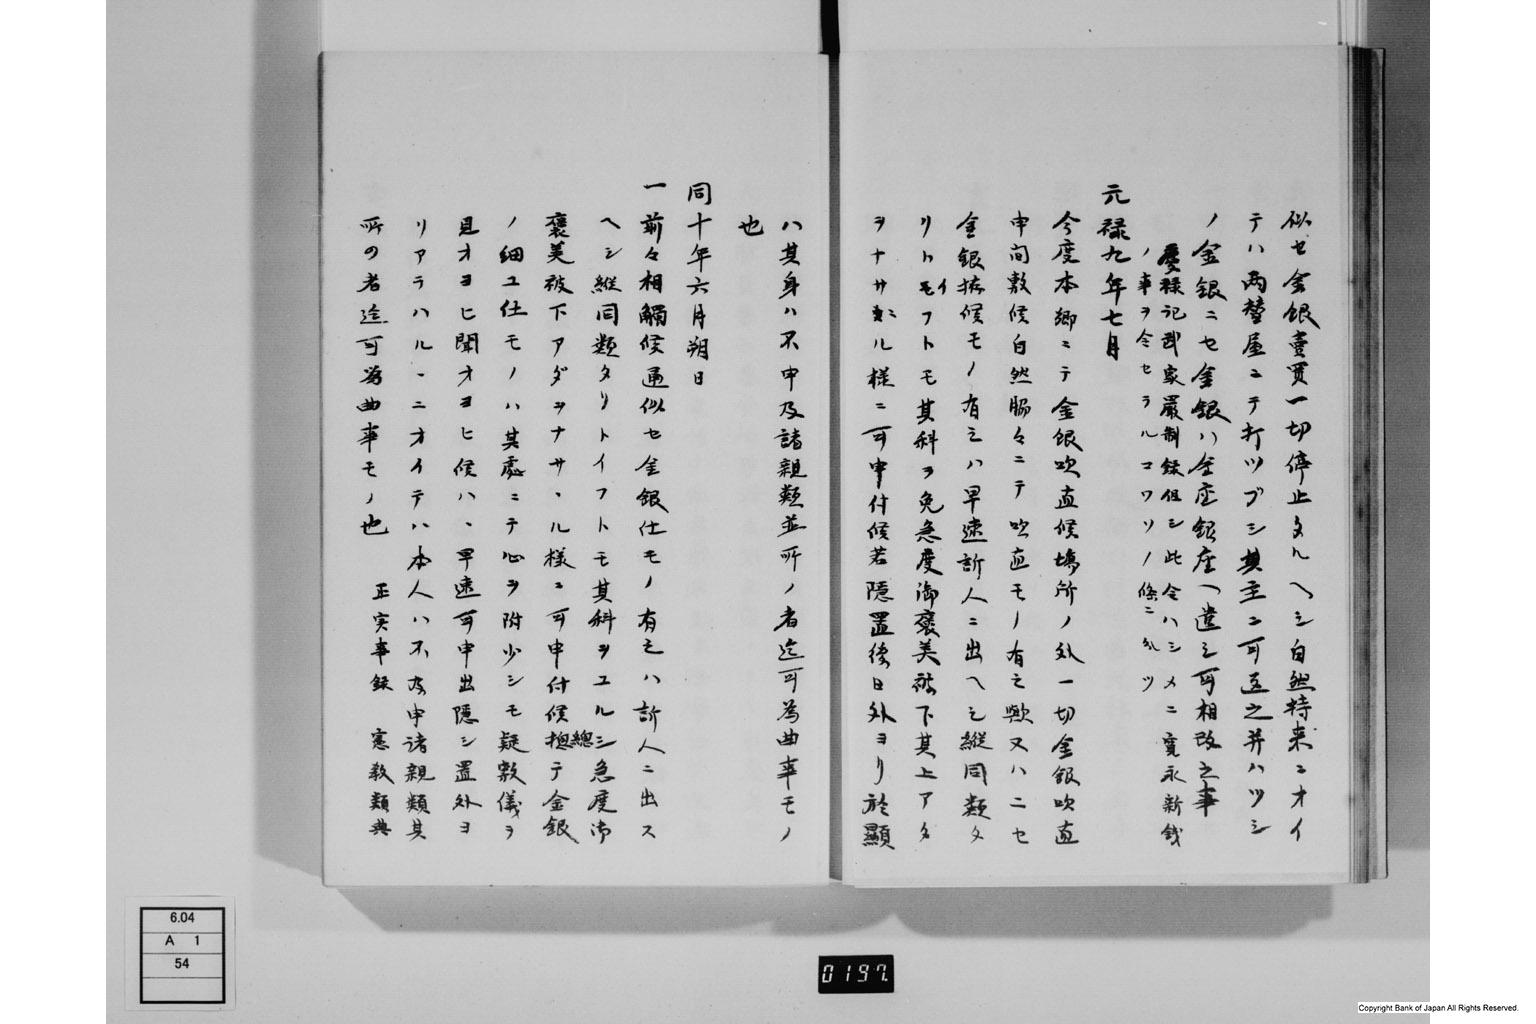 似セ金銀賣買一切停止タルヘシ自然特来ニオイ
テハ両替屋ニテ打ツブシ其主ニ可返之并ハツシ
ノ金銀ニセ金銀ハ金座銀座ヘ遣シ可相改之事
慶禄記武家嚴制録但シ此令ハシメニ寛永新銭
ノ事ヲ令セラルコワソノ條ニ
元禄九年七月
今度本郷ニテ金銀吹直候場所ノ外一切金銀吹直
申間敷候自然脇々ニテ吹直モノ有之歟又ハニセ
金銀拵候モノ有之ハ早速訴人ニ出ヘシ縱同類タ
リトモイフトモ其科ヲ免急度御褒美被下其上アタ
ヲナサヽル様ニ可申付候若隠置後日外ヨリ於顯
ハ其身ハ不申及諸親類並所ノ者迄可為曲事モノ
也
同十年六月朔日
一前々相觸候通似セ金銀仕モノ有之ハ訴人ニ出ス
ヘシ縱同類タリトイフトモ其科ヲユルシ急度御
褒美被下アダヲナサヽル様ニ可申付候總テ金銀
ノ細工仕モノハ其處ニテ心ヲ附少シモ疑敷儀ヲ
見オヨヒ聞オヨヒ候ハヽ早速可申出隠シ置外ヨ
リアラハルヽニオイテハ本人ハ不及申諸親類其
所の者迄可為曲事モノ也 正実事録 憲教類典
6.04
A 1
54
0197.
Copyright Bank of Japan All Rights Reserved.